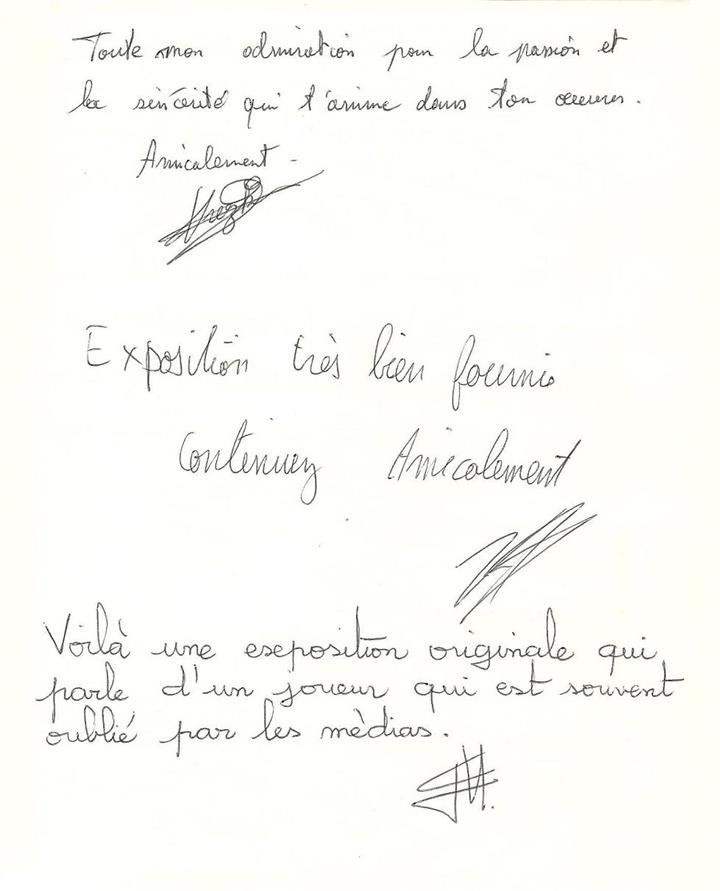 Toute mon admiration pour la passion et
la sincérité qui t'anime dans ton oeuvres.
Amicalement -
Exposition très bien fournis
Continuez Amicalement
Voilà une exeposition originale qui
parle d'un joueur qui est souvent
oublié par les mèdias.
JM.